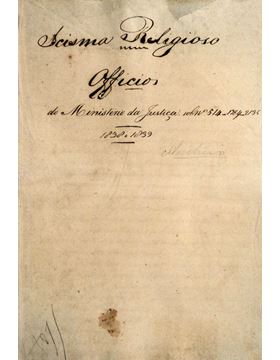 Scisma Religioso
Officios
do Ministerio da Justiça sob Nos 514-1764-2135
1838 e 1839
Archivo